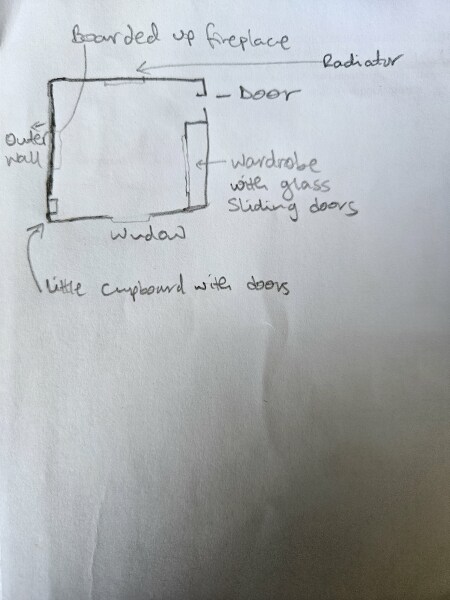 Boarded up fireplace
Radiator
- Door
Outer
wall
wardrobe
with glass
sliding doors
Window
Little cupboard with doors